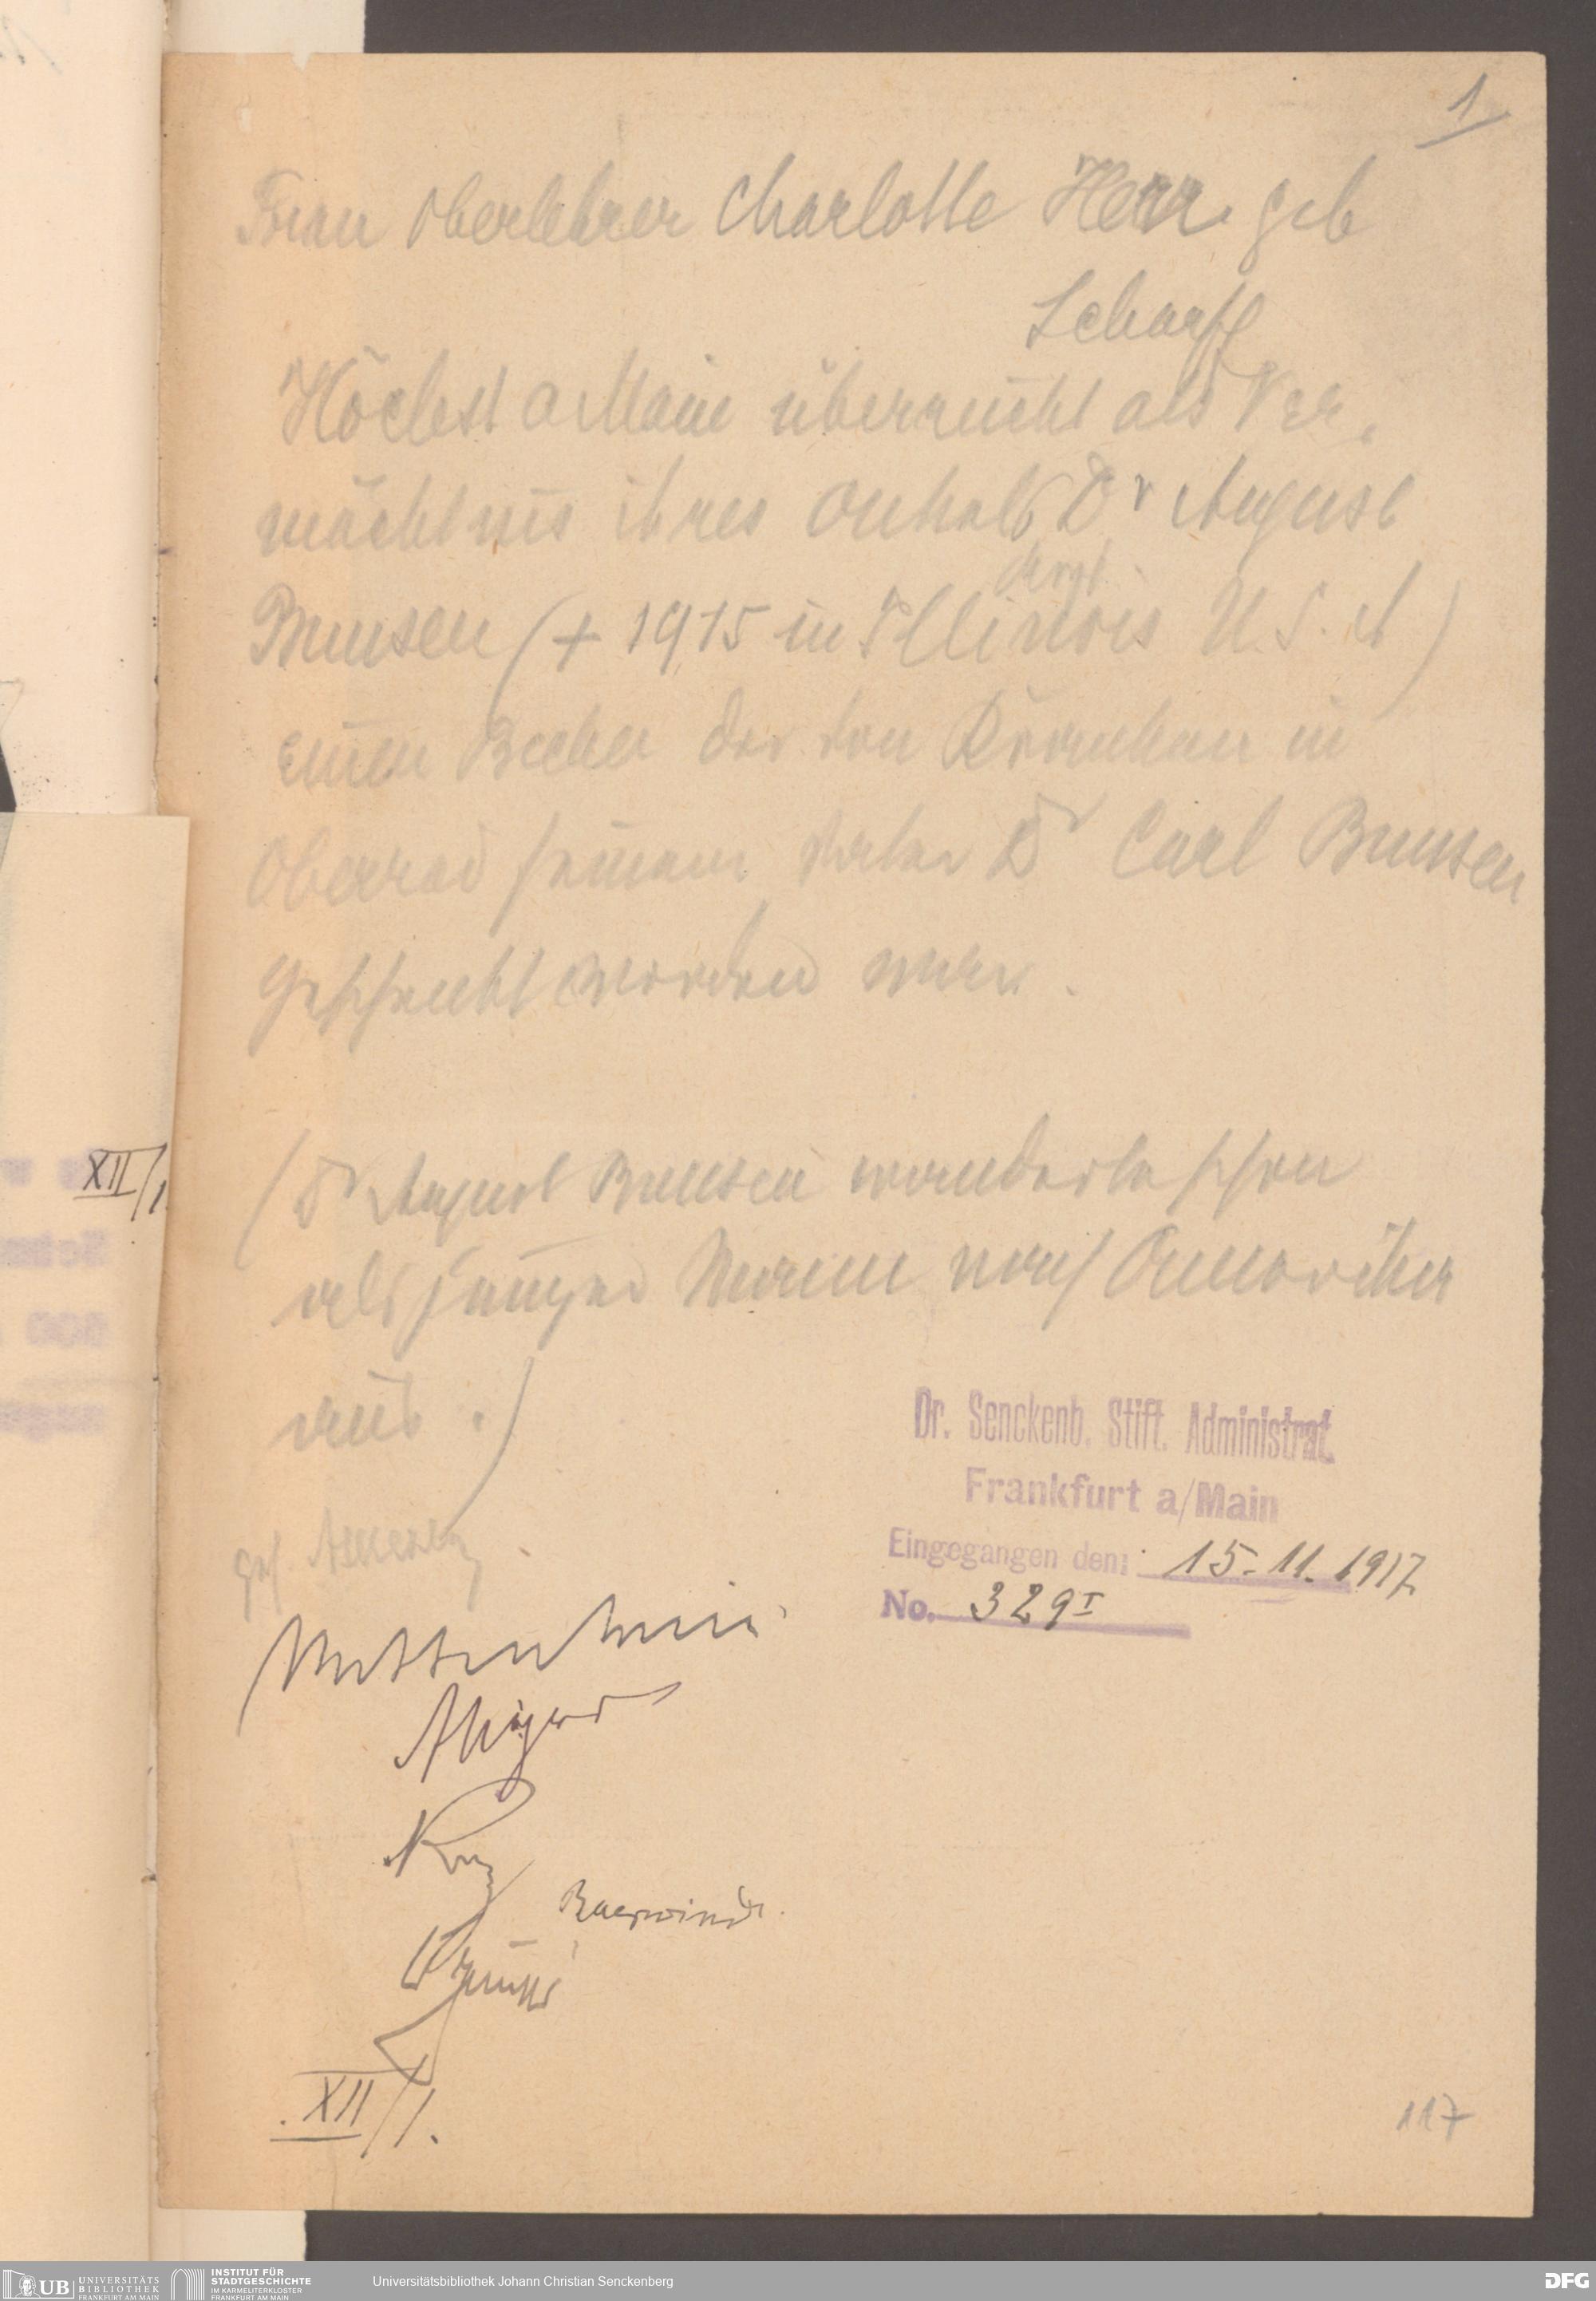 1
Frau Oberlehrer Charlotte Herr geb
Scharff
Höchst a Main überreicht als Ver-
mächtnis ihres Onkels Dr August
Bunsen († 1915 in Illinois U. S. A)
einen Becher der von Kranken in
Oberrad seinem Vater Dr Carl Bunsen
geschenkt worden war.
(Dr August Bunsen wanderte schon
als junger Mann nach Amerika
aus.)
Dr. Senckenb. Stift. Administrat.
Frankfurt a/Main
Eingegangen den: 15.11.1917
No. 329 I
ges
XII/1
XII/1.
117
UB UNIVERSITÄTS
BIBLIOTHEK
FRANKFURT AM MAIN
INSTITUT FÜR
STADTGESCHICHTE
IM KARMELITERKLOSTER
FRANKFURT AM MAIN
Universitätsbibliothek Johann Christian Senckenberg
DFG